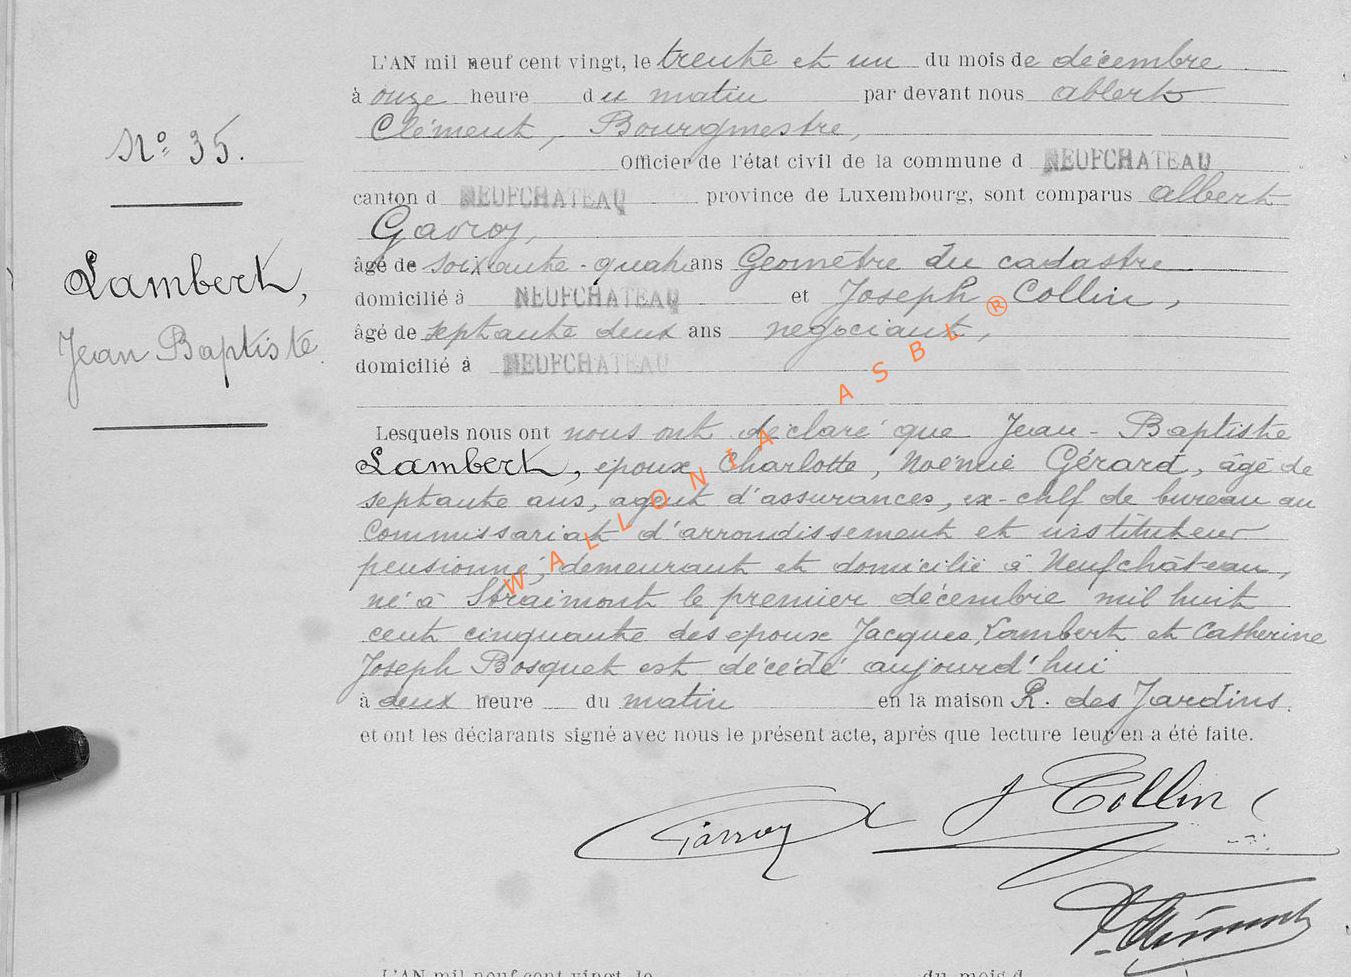 L'AN mil neuf cent vingt, le trente et un du mois de décembre
à onze heure du matin par devant nous Albert
Clément, Bourgmestre,
Officier de l'état civil de la commune d NEUFCHATEAU
canton d NEUFCHATEAU province de Luxembourg, sont comparus Albert
Gavroy,
âgé de soixante-quatre ans Géomètre du cadastre
domicilié à NEUFCHATEAU et Joseph Collin,
âgé de septante deux ans négociant,
domicilié à NEUFCHATEAU
Lesquels nous ont nous ont déclaré que Jean-Baptiste
Lambert, époux Charlotte, Noémie Gérard, âgé de
septante ans, agent d'assurances, ex-chef de bureau au
Commissariat d'arrondissement et instituteur
pensionné, demeurant et domicilié à Neufchâteau,
né à Straimont le premier décembre mil huit
cent cinquante des époux Jacques Lambert et Catherine
Joseph Bosquet est décédé aujourd'hui
à deux heure du matin en la maison R. des Jardins.
et ont les déclarants signé avec nous le présent acte, après que lecture leur en a été faite.
Nº 35.
Lambert,
Jean Baptiste.
WALLONIA ASBL ®
Gavroy J Collin
Clément
L'AN mil neuf cent vingt, le du mois d